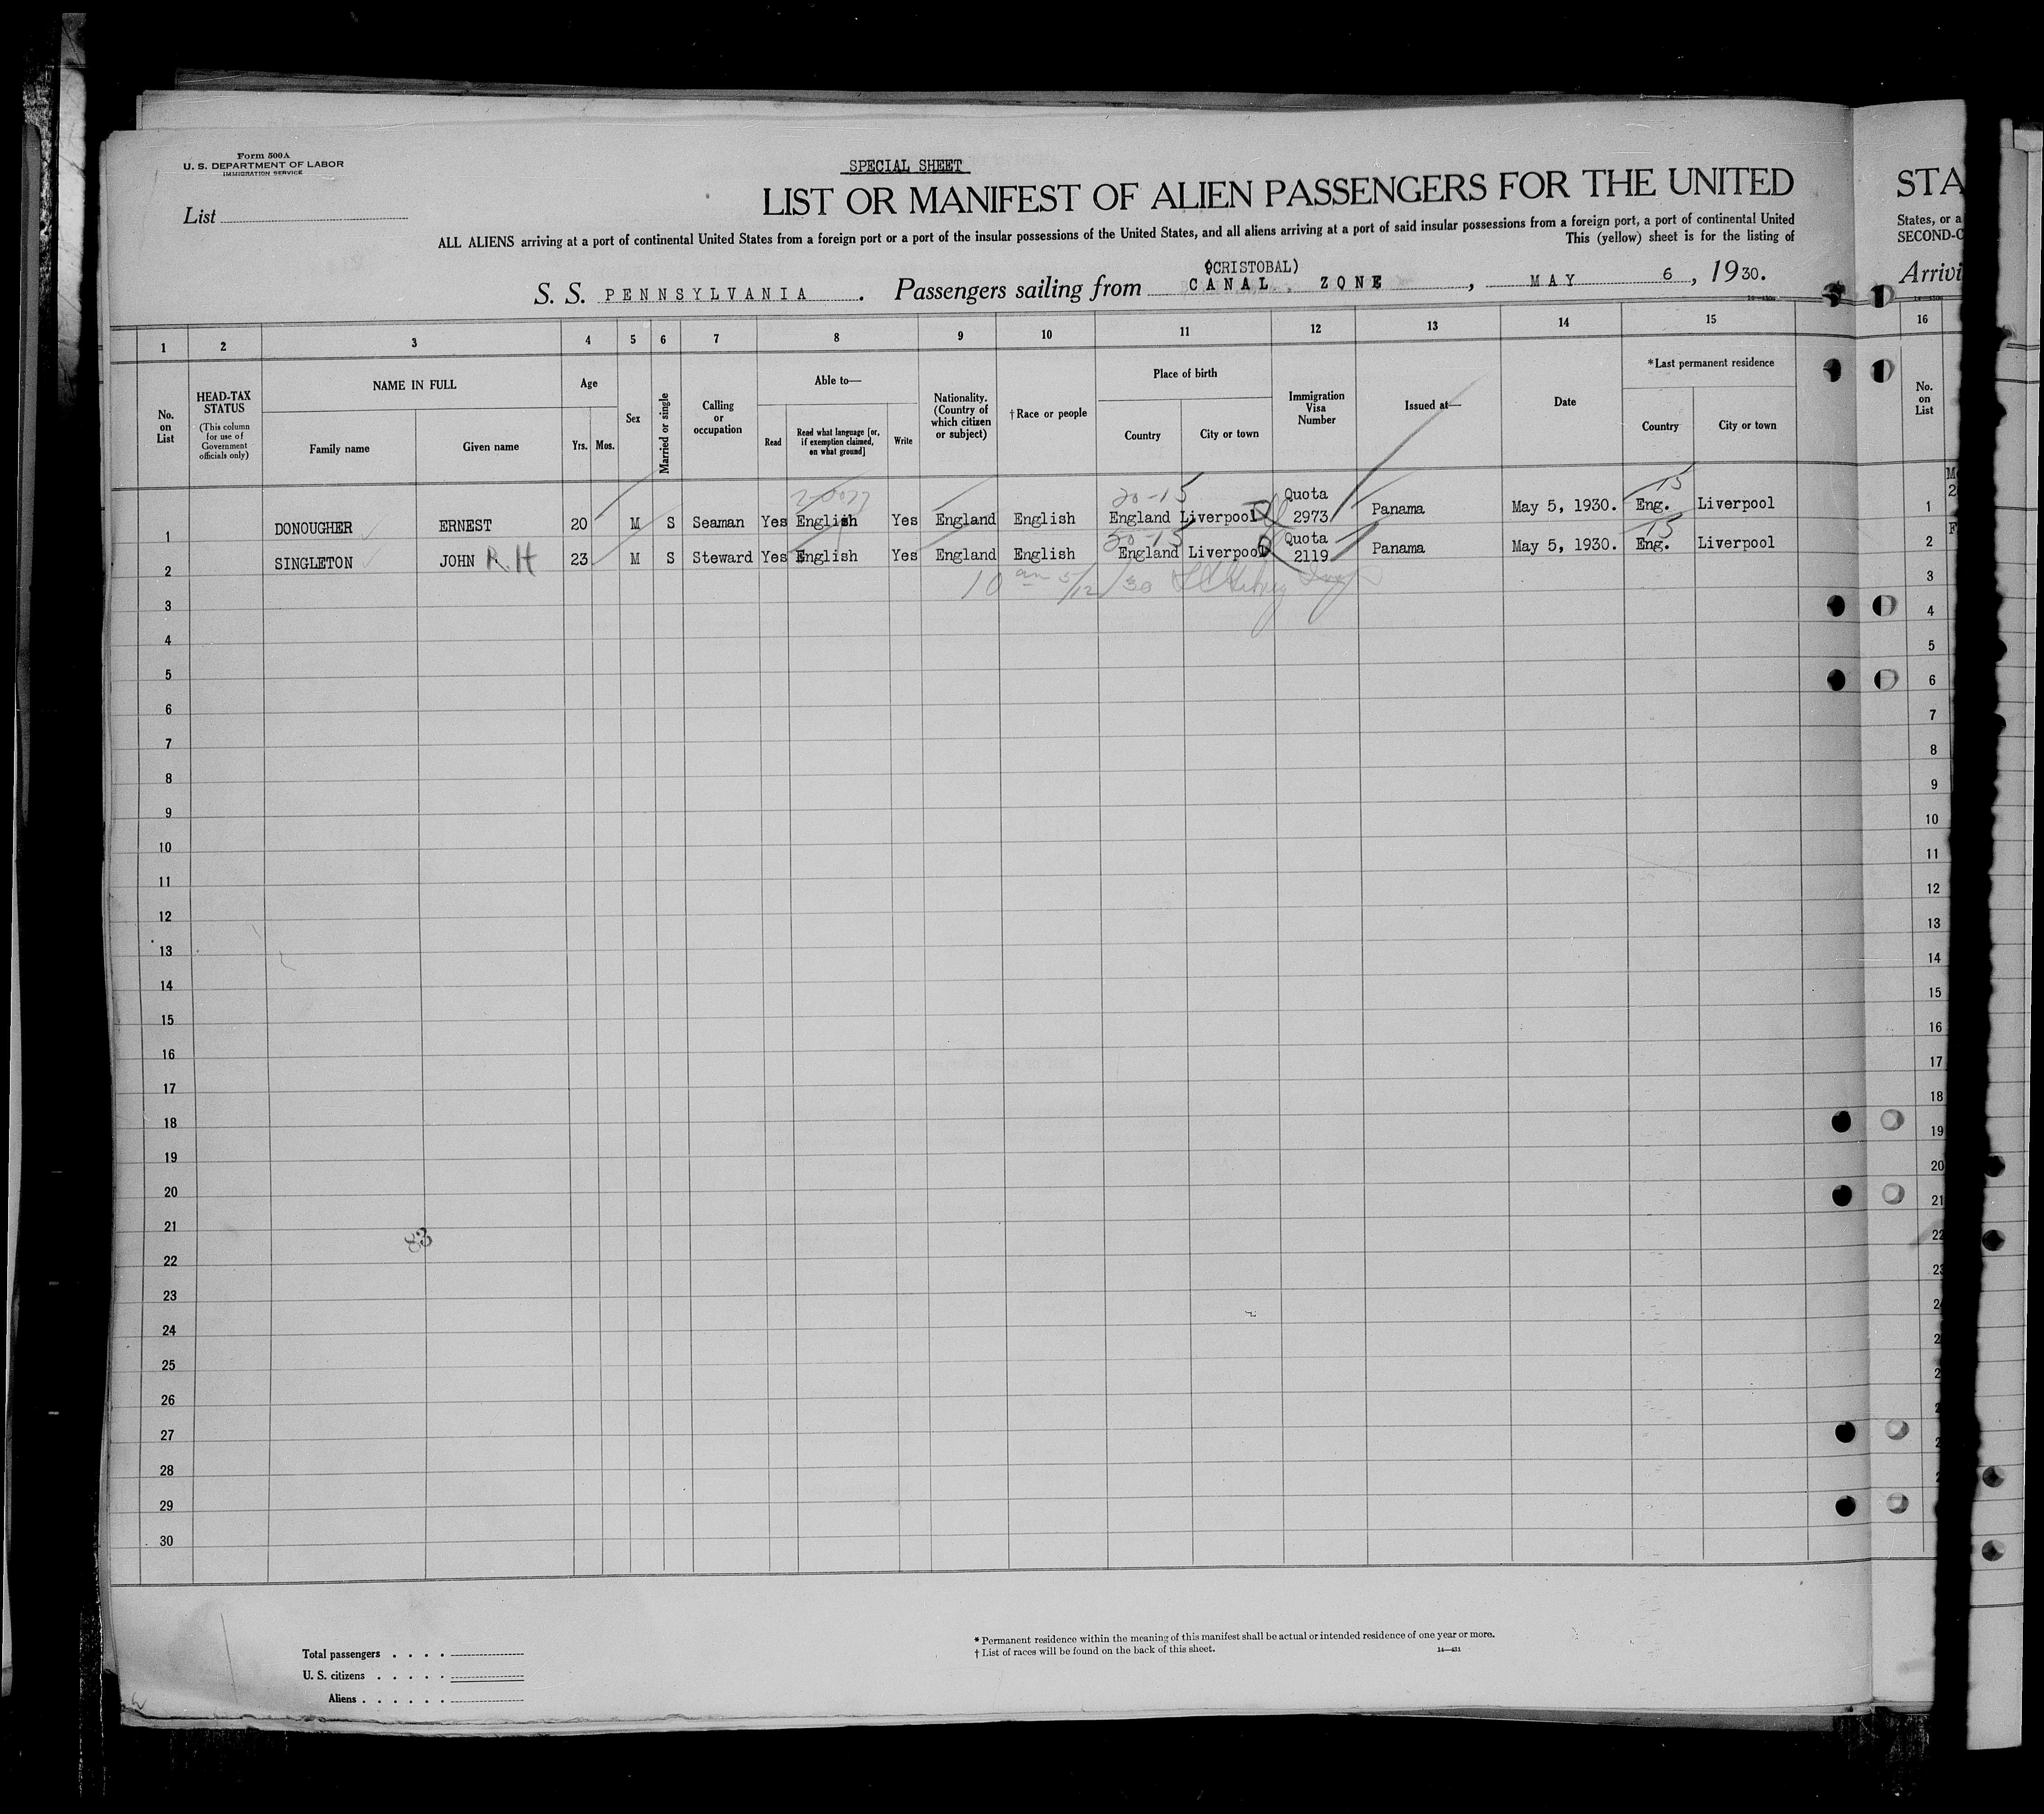 Form 500A
U. S. DEPARTMENT OF LABOR
IMMIGRATION SERVICE
List
SPECIAL SHEET
LIST OR MANIFEST OF ALIEN PASSENGERS FOR THE UNITED
STA
ALL ALIENS arriving at a port of continental United States from a foreign port or a port of the insular possessions of the United States, and all aliens arriving at a port of said insular possessions from a foreign port, a port of continental United
States, or a
This (yellow) sheet is for the listing of
SECOND-C
(CRISTOBAL)
S. S. PENNSYLVANIA . Passengers sailing from CANAL ZONE , MAY 6 , 1930.
Arrivi
1 2 3 4 5 6 7 8 9 10 11 12 13 14 15 16
No. on List
HEAD-TAX STATUS
(This column for use of Government officials only)
NAME IN FULL
Family name Given name
Age
Yrs. Mos.
Sex
Married or single
Calling or occupation
Able to—
Read
Read what language [or, if exemption claimed, on what ground]
Write
Nationality. (Country of which citizen or subject)
†Race or people
Place of birth
Country City or town
Immigration Visa Number
Issued at—
Date
*Last permanent residence
Country City or town
No. on List
20-15 15
1 DONOUGHER ERNEST 20 M S Seaman Yes English Yes England English England Liverpool Quota 2973 Panama May 5, 1930. Eng. Liverpool 1
20-15 15
2 SINGLETON JOHN R.H 23 M S Steward Yes English Yes England English England Liverpool Quota 2119 Panama May 5, 1930. Eng. Liverpool 2
10 am 5/12/30
3 3
4 4
5 5
6 6
7 7
8 8
9 9
10 10
11 11
12 12
13 13
14 14
15 15
16 16
17 17
18 18
19 19
20 20
21 21
22 22
23 23
24
25
26
27
28
29
30
Total passengers
U. S. citizens
Aliens
* Permanent residence within the meaning of this manifest shall be actual or intended residence of one year or more.
† List of races will be found on the back of this sheet.